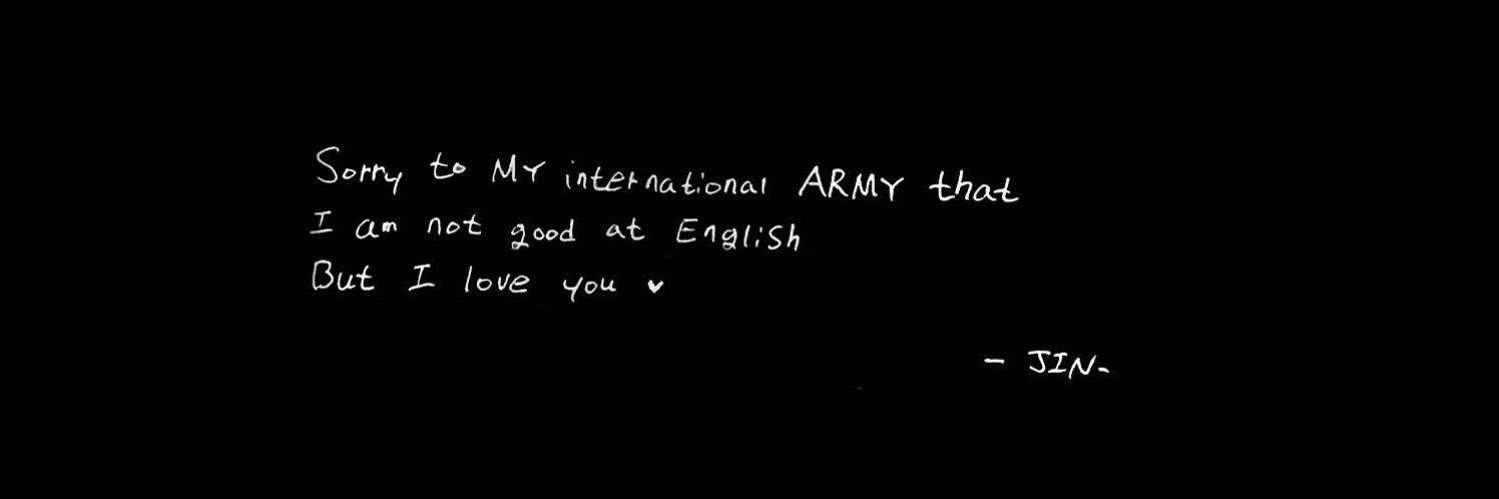 Sorry to MY international ARMY that
I am not good at English
But I love you ♥
- JIN-